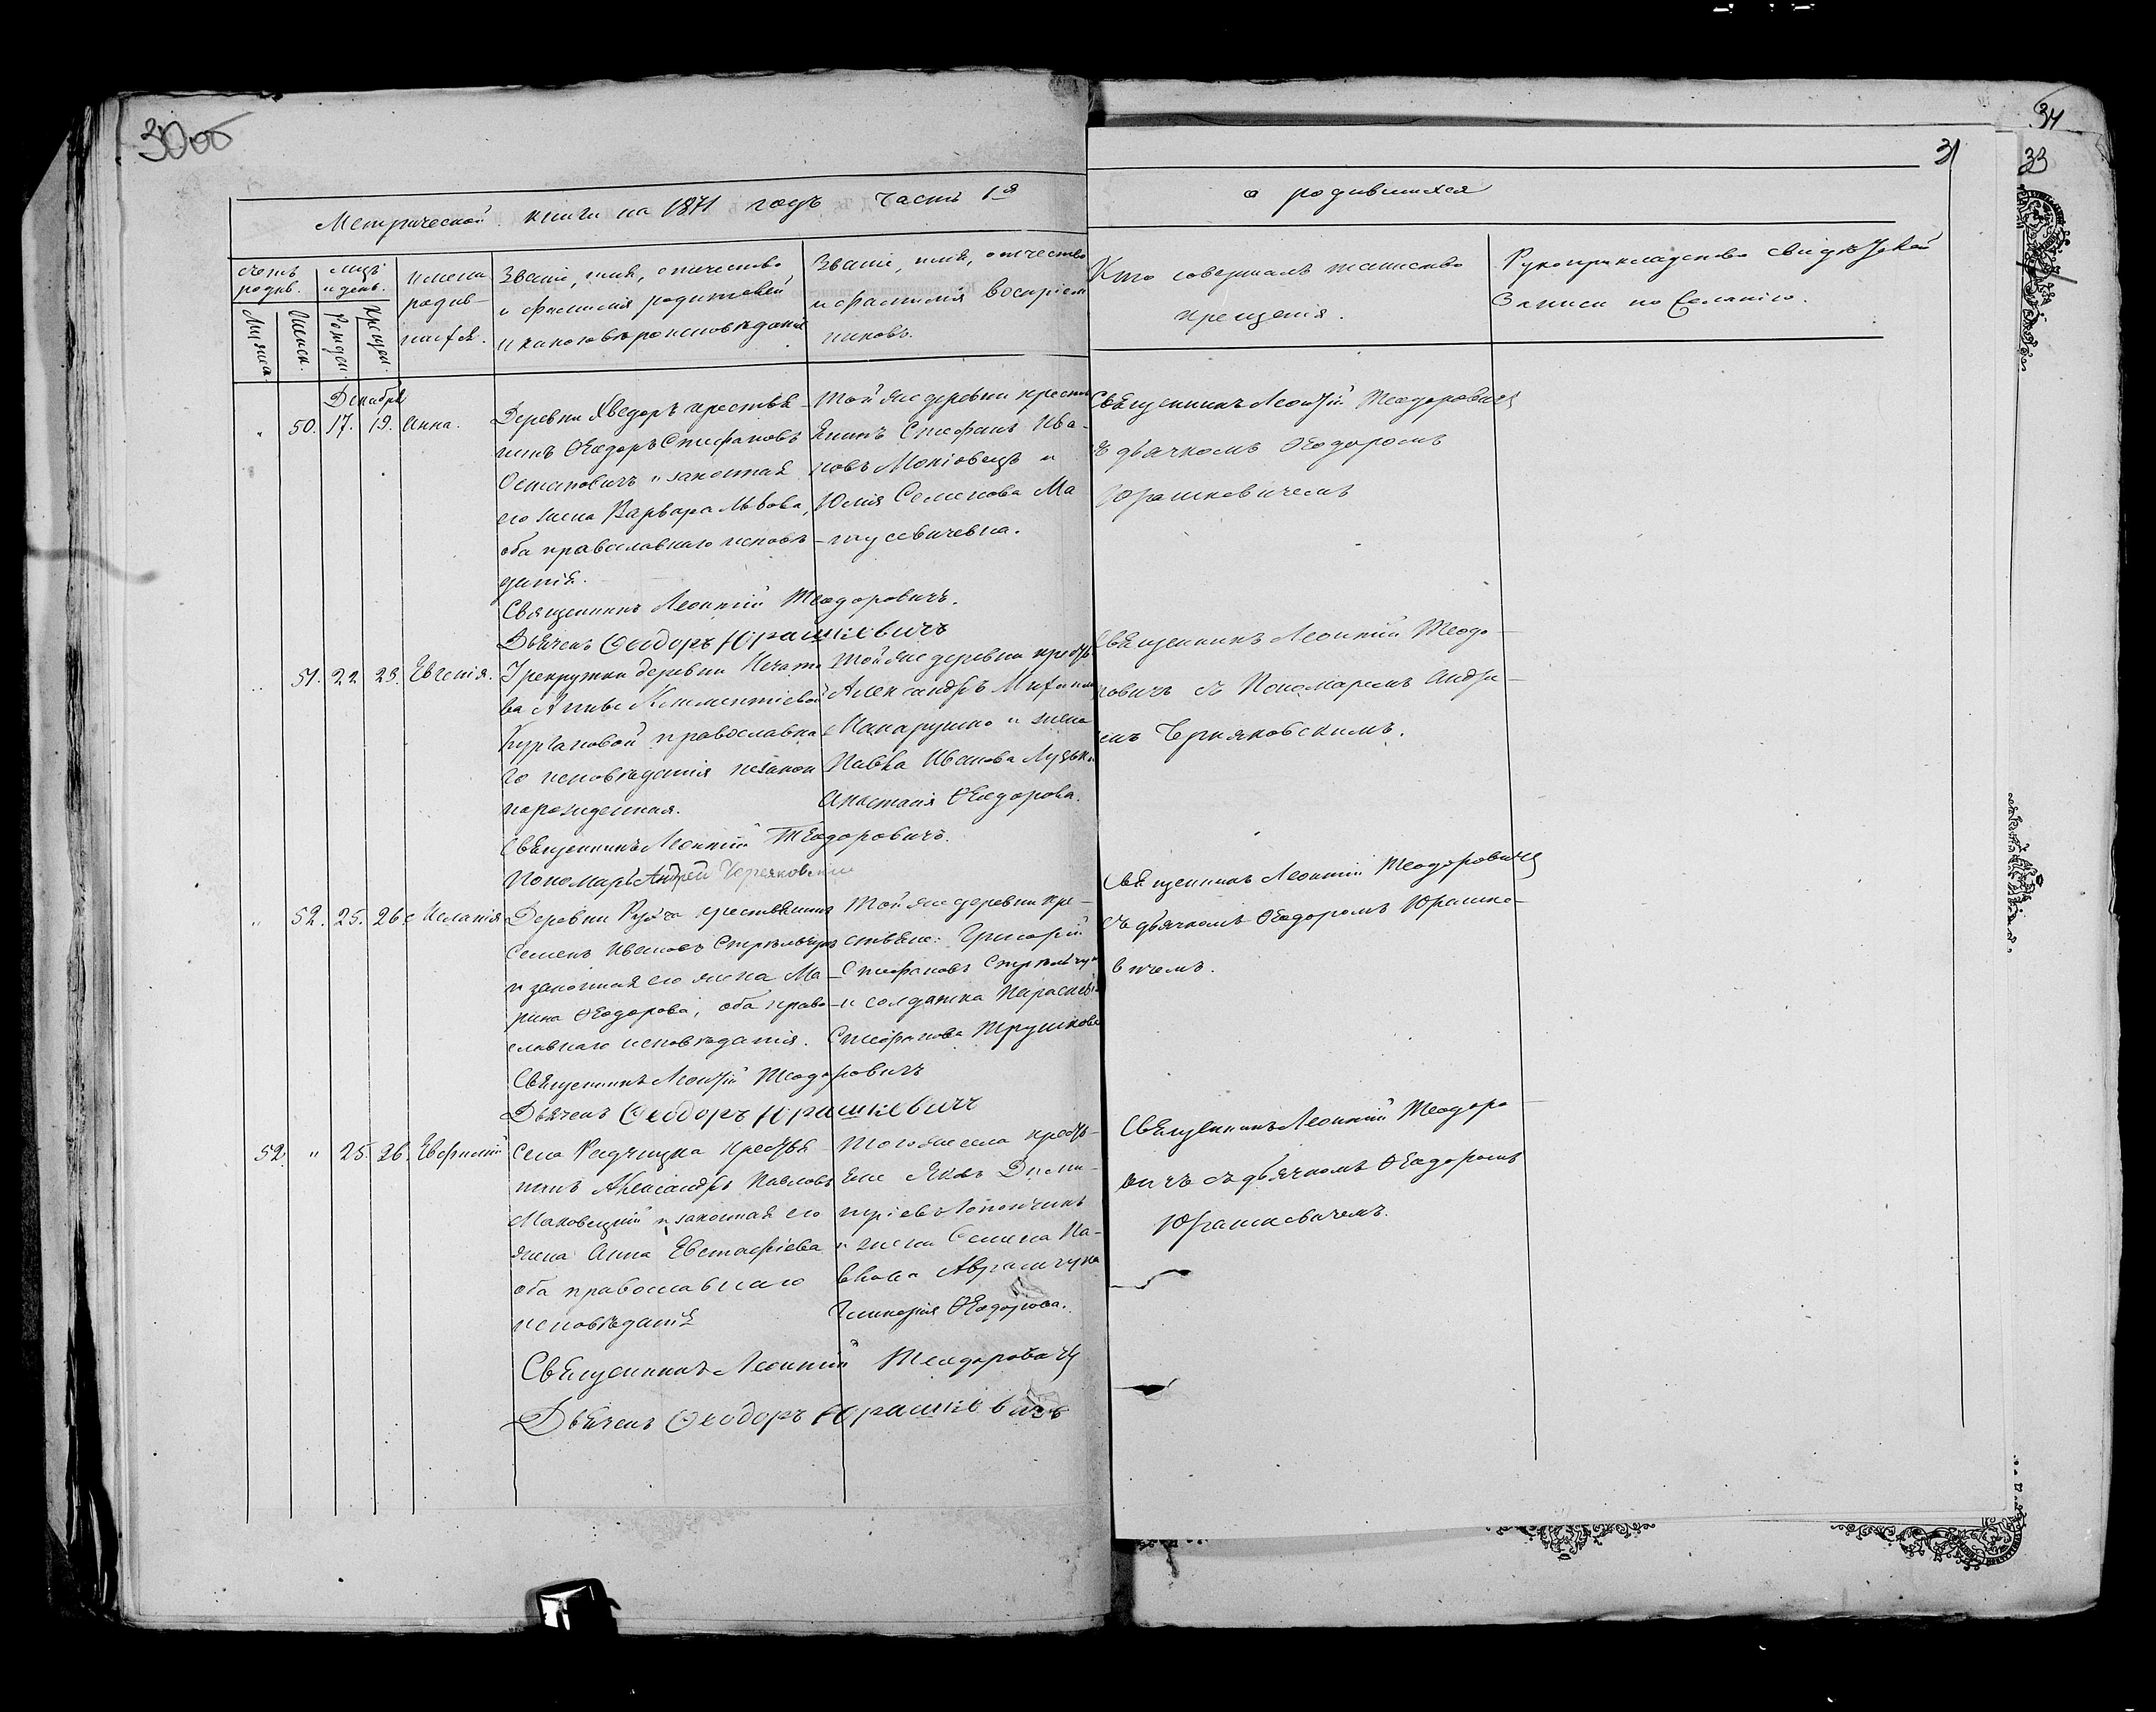 30об
34
31
33
Метрической книги на 1871 годъ часть 1я
о родившихся
счетъ родив.
Мужска.
Женск.
мцъ и день.
Рожден.
Крещен.
Имена родившихся.
Званіе, имя, отчество
и фамилія родителей,
и какого вѣроисповѣданія
Званіе, имя, отчество
и фамилія воспріем
никовъ.
Кто совершалъ таинство
крещенія.
Рукоприкладство свидѣтелей
Записи по желанію.
Декабря
„ 50. 17. 19. Анна.
Деревни Хведоръ крестья-
нинъ Ѳеодоръ Стефановъ
Остаповичъ и законная
его жена Варвара Львова,
оба православнаго исповѣ-
данія.
Священникъ Леонтій Теодоровичъ.
Дьячекъ Ѳеодоръ Юрашкевичъ
Той же деревни кресть
янинъ Стефанъ Ива-
новъ и
Юлія Семенова Ма
тусевичевна.
Священникъ Леонтій Теодоровичъ
съ дьячкомъ Ѳеодоромъ
Юрашкевичемъ
„ 51. 22 23. Евгенія.
У рекрутки деревни
Климентіевой
Кургановой православна
го исповѣданія незакон
порожденная.
Священникъ Леонтій Теодоровичъ.
Пономарь Андрей Черняковскій
Той же деревни кресть
Александръ
Макарушко и жена
Павла Иванова
Анастасія Ѳеодорова.
Священникъ Леонтій Теодо-
ровичъ съ Пономаремъ Андре-
емъ Черняковскимъ.
„ 52. 25. 26. Меланія
Деревни крестьянинъ
Семенъ Ивановъ Стрѣльчукъ
и законная его жена Ма-
рина Ѳеодорова, оба право-
славнаго исповѣданія.
Священникъ Леонтій Теодоровичъ
Дьячекъ Ѳеодоръ Юрашкевичъ
Той же деревни кре-
стьяне: Григорій
Стефановъ Стрѣльчукъ
и солдатка Параскева
Стефанова Трушкова
Священникъ Леонтій Теодоровичъ
съ дьячкомъ Ѳеодоромъ Юрашке-
вичемъ.
52 „ 25. 26. Евфимій
Села Радчицка крестья-
нинъ Александръ Павловъ
Маковецкій и законная его
жена Анна Евстафіева
оба православнаго
исповѣданія
Священникъ Леонтій Теодоровичъ
Дьячекъ Ѳеодоръ Юрашкевичъ
Того же села кресть-
яне Яковъ Дими-
тріевъ
и жена Семена Па-
влова Аврамчука
Гликерія Ѳеодорова.
Священникъ Леонтій Теодоро-
вичъ съ дьячкомъ Ѳеодоромъ
Юрашкевичемъ.